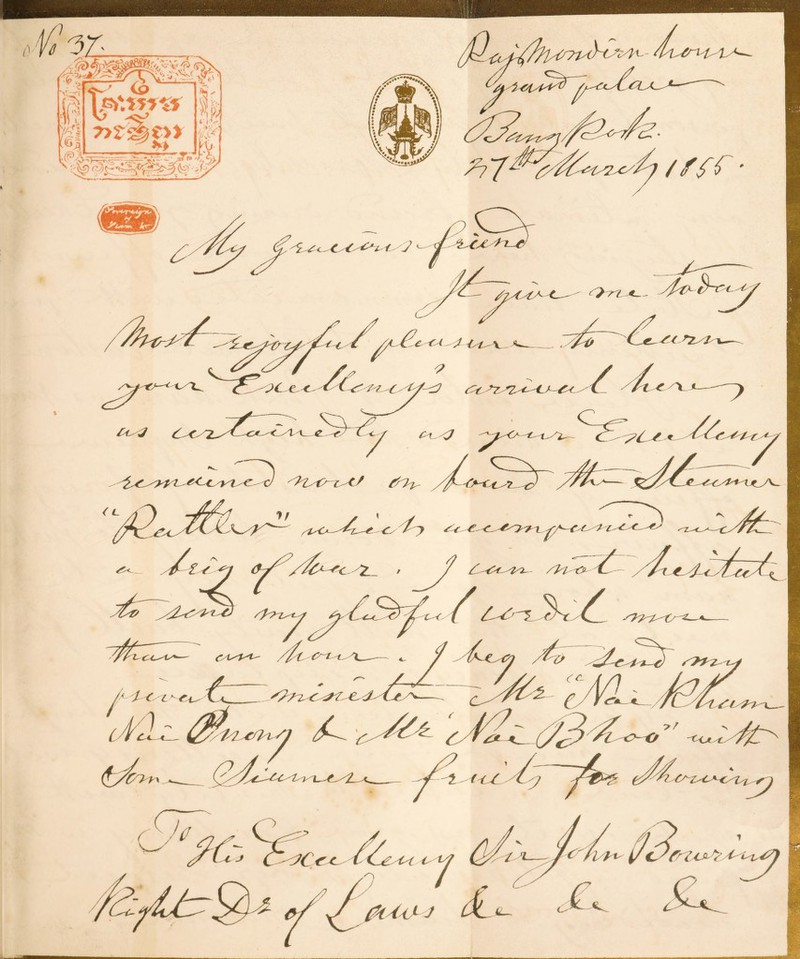 No 37.
Rajmondirn house
grand palace
Bangkok.
27th March 1855.
My gracious friend
It give me today
most rejoyful pleasure to learn
your Excellency's arrival here
as certainedly as your Excellency
remained now on board the Steamer
"Rattler" which accompanied with
a brig of war. I can not hesitate
to send my gladful cordil more
than an hour. I beg to send my
private minister Mr "Nai Kham
Nai Pnong & Mr Nai Bhoo" with
Some Siamese fruits for Showing
To His Excellency Sir John Bowring
Right Dr of Laws &c &c &c